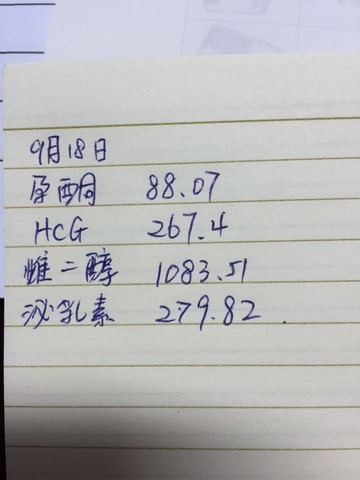 9月18日
孕酮 88.07
HCG 267.4
雌二醇 1083.51
泌乳素 279.82.